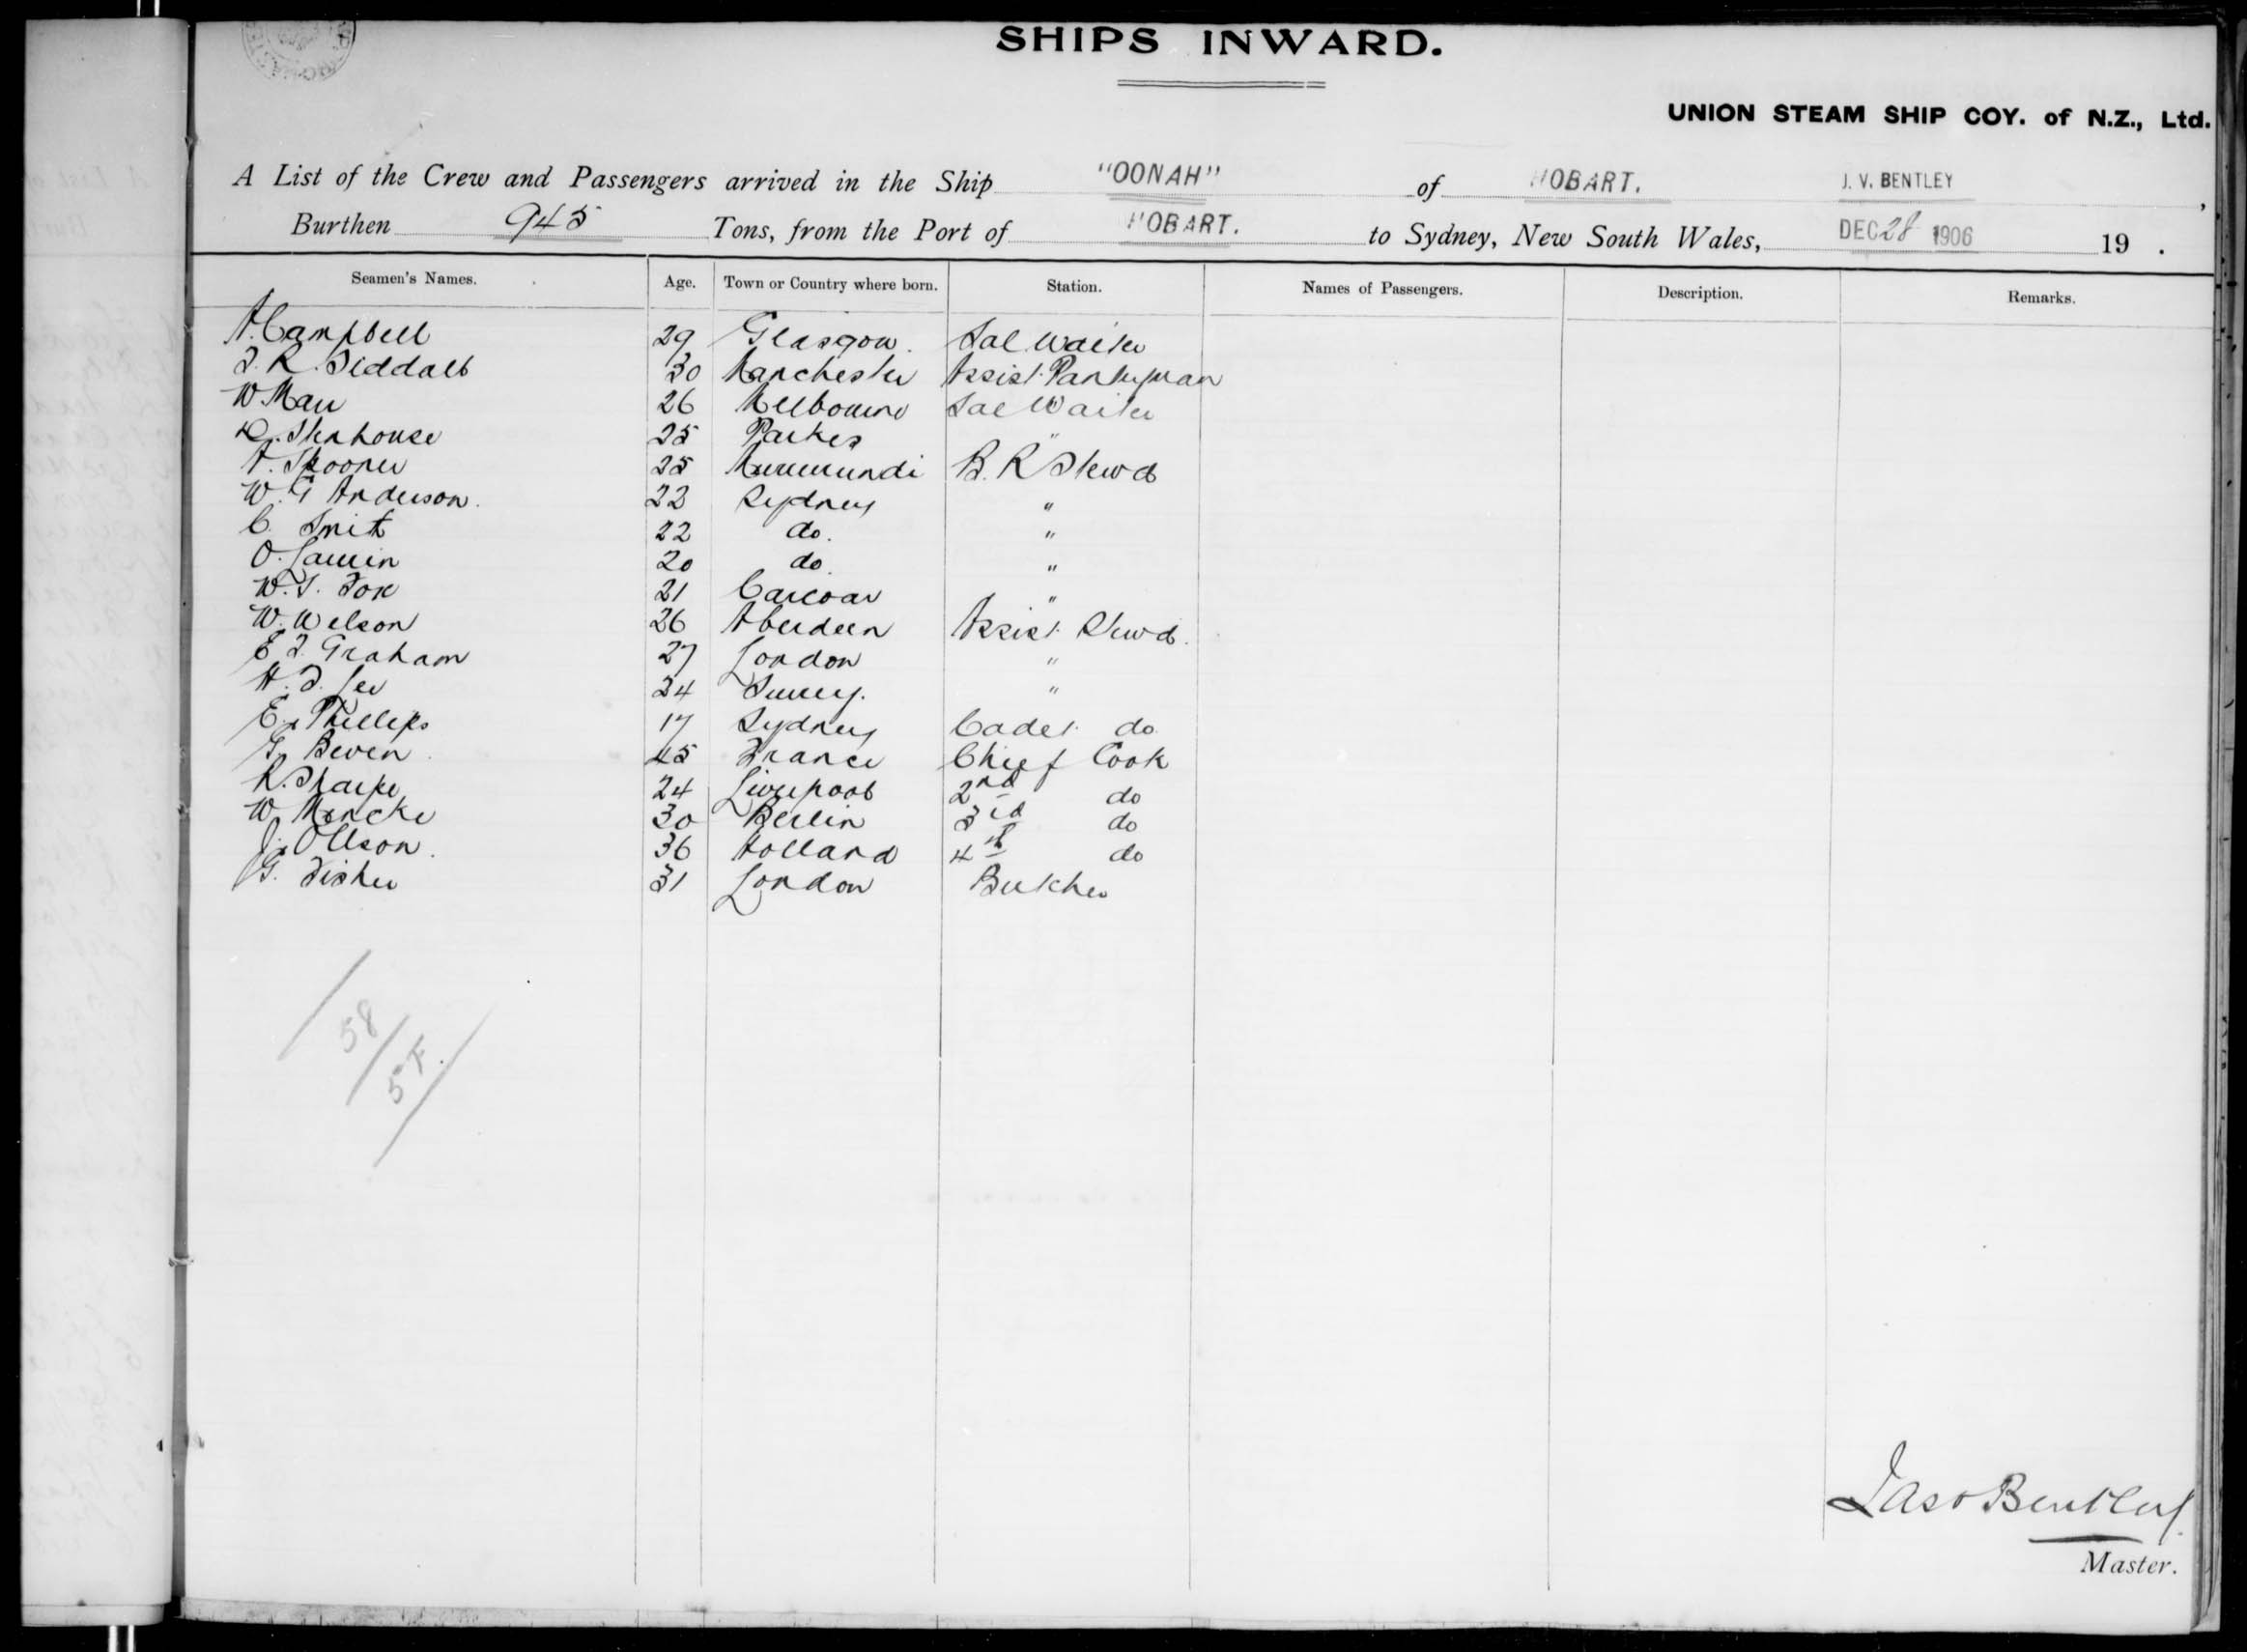 SHIPS INWARD.
UNION STEAM SHIP COY. of N.Z., Ltd.
A List of the Crew and Passengers arrived in the Ship "OONAH" of HOBART. J. V. BENTLEY,
Burthen 945 Tons, from the Port of HOBART. to Sydney, New South Wales, DEC 28 1906 19 .
Seamen's Names. Age. Town or Country where born. Station. Names of Passengers. Description. Remarks.
A. Campbell 29 Glasgow. Sal Waiter
J. R. Siddall 30 Manchester Assist. Pantryman
W. Marr 26 Melbourne Sal Waiter
D. Stenhouse 25 Parkes "
A. Spooner 25 Murrurundi B. R Stewd
W. G Anderson. 22 Sydney "
C. Smith 22 do. "
O. 20 do "
W. T. Fox 21 Carcoar "
W. Welson 26 Aberdeen Assist. Stewd.
E J. Graham 27 London "
H. D. Lee 24 Surrey. "
E. Phillips 17 Sydney Cadet. do
G. Beven 45 France Chief Cook
R. Sharpe 24 Liverpool 2nd do
W. Mencke 30 Berlin 3rd do
J. Ollson. 36 Holland 4th do
G. Fisher 31 London Butcher
58
5F.
Jas V Bentley
Master.